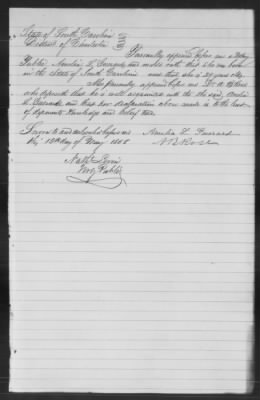 State of South Carolina
District of Charleston
Personally appeared before me a Notary
Public Amelia L. and made oath that she was born
in the State of South Carolina and that she is years old.
Also personally appeared before me Dr.
who deposeth that he is well acquainted with the said
L. and that her declaration above made is to the best
of deponents knowledge and belief true.
Sworn to and subscribed before me
Amelia L.
this 13th day of May 1868
Nathl Levin
Noty Public